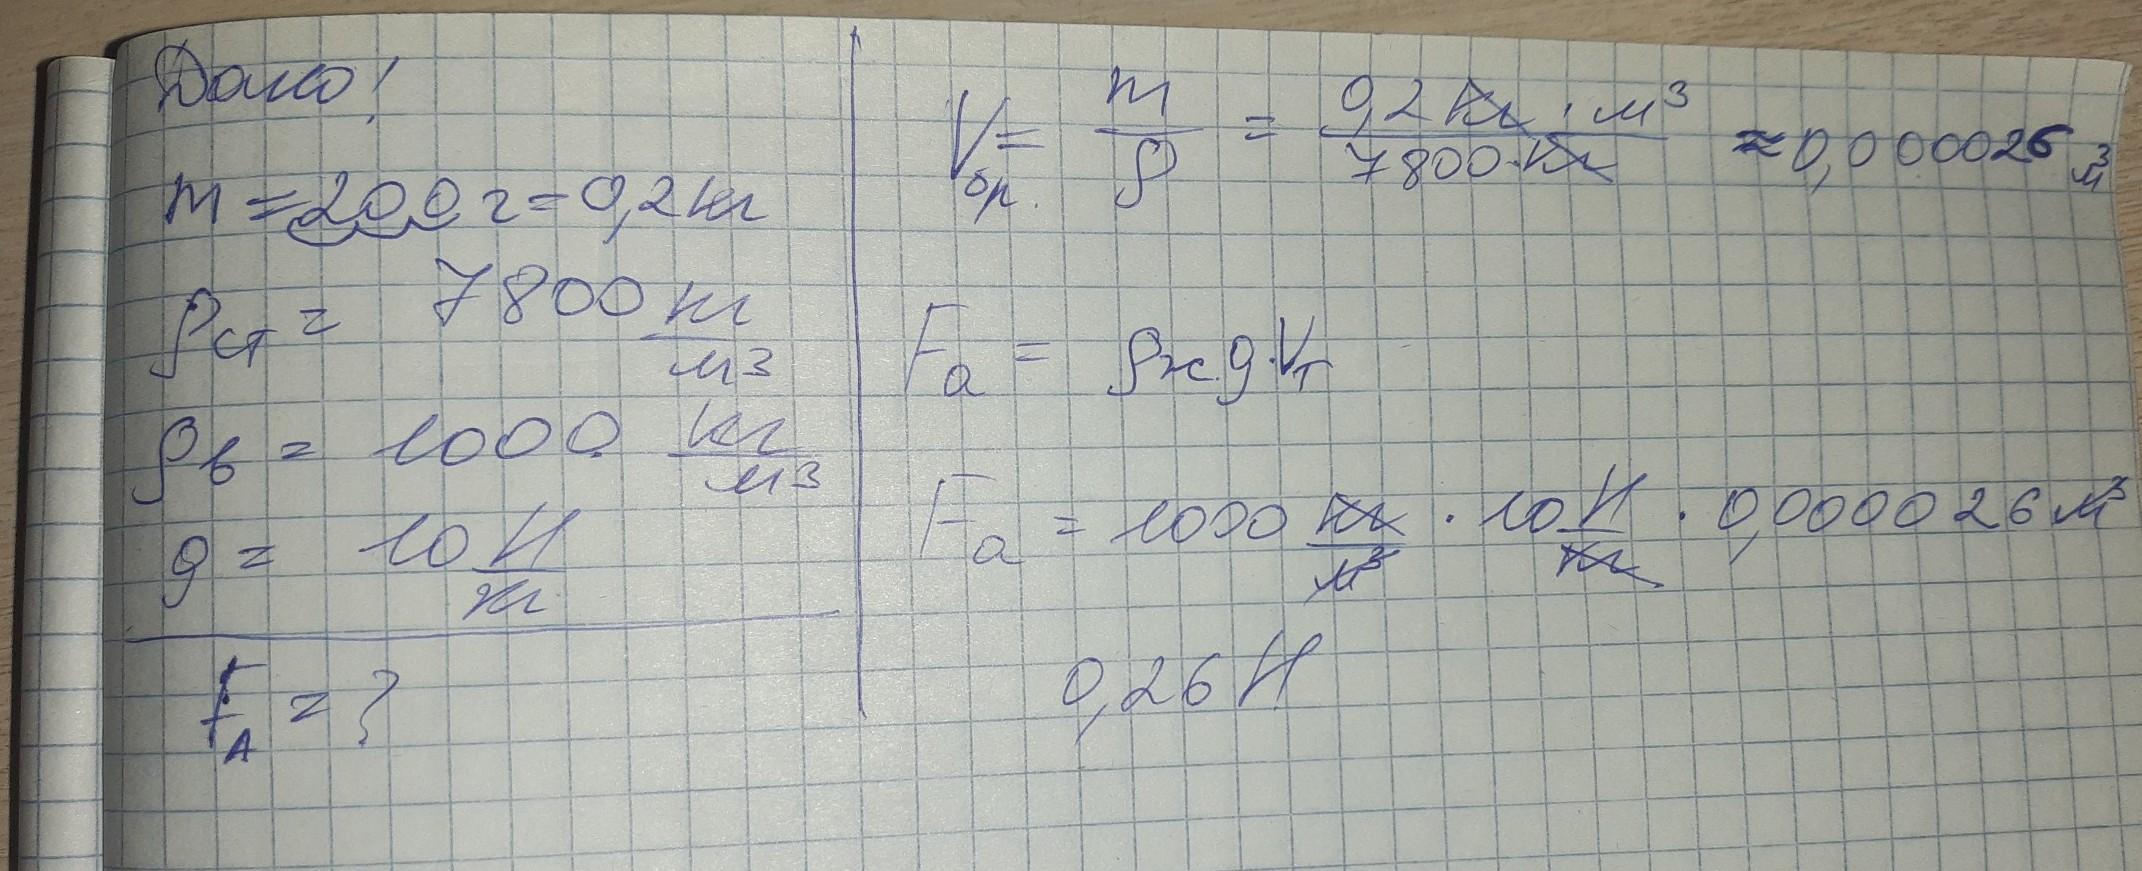 Дано!
m = 200 г = 0,2 кг
ρст = 7800 кг/м3
ρв = 1000 кг/м3
g = 10 Н/кг
FA = ?
Vбр. = m/ρ = 0,2 кг · м³/7800 · кг ≈ 0,000026 м³
Fa = ρж g · Vт
Fa = 1000 кг/м³ · 10 Н/кг · 0,000026 м³
0,26 Н